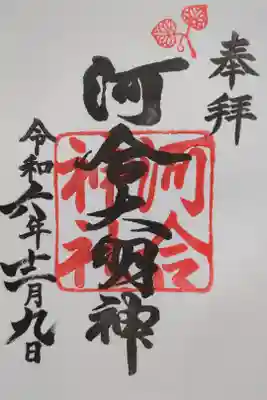 奉拝
河合大明神
河合
神社
令和六年十二月九日